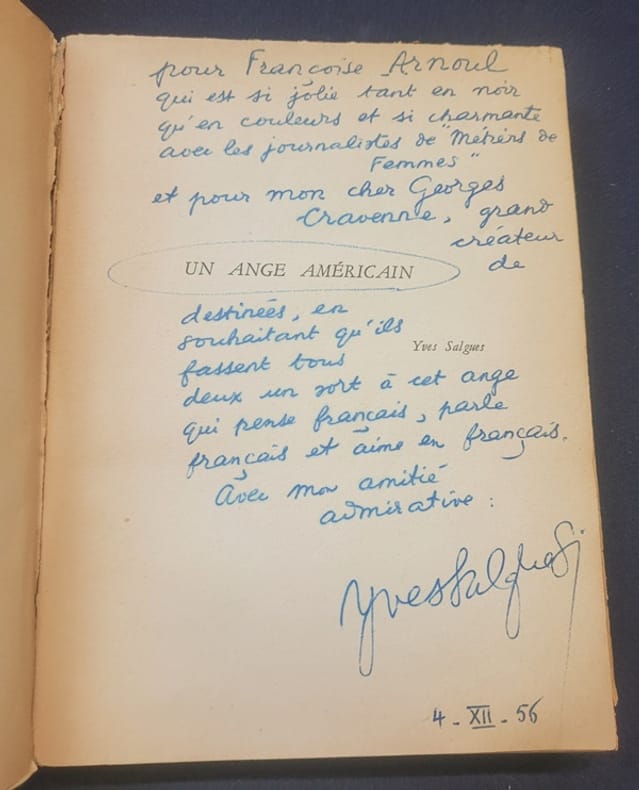 pour Françoise Arnoul
qui est si jolie tant en noir
qu'en couleurs et si charmante
avec les journalistes de "Métiers de
Femmes"
et pour mon cher Georges
Cravenne, grand
créateur
de
UN ANGE AMÉRICAIN
destinées, en
souhaitant qu'ils
Yves Salgues
fassent tous
deux un sort à cet ange
qui pense français, parle
français et aime en français.
Avec mon amitié
admirative :
Yves Salgues
4 - XII - 56